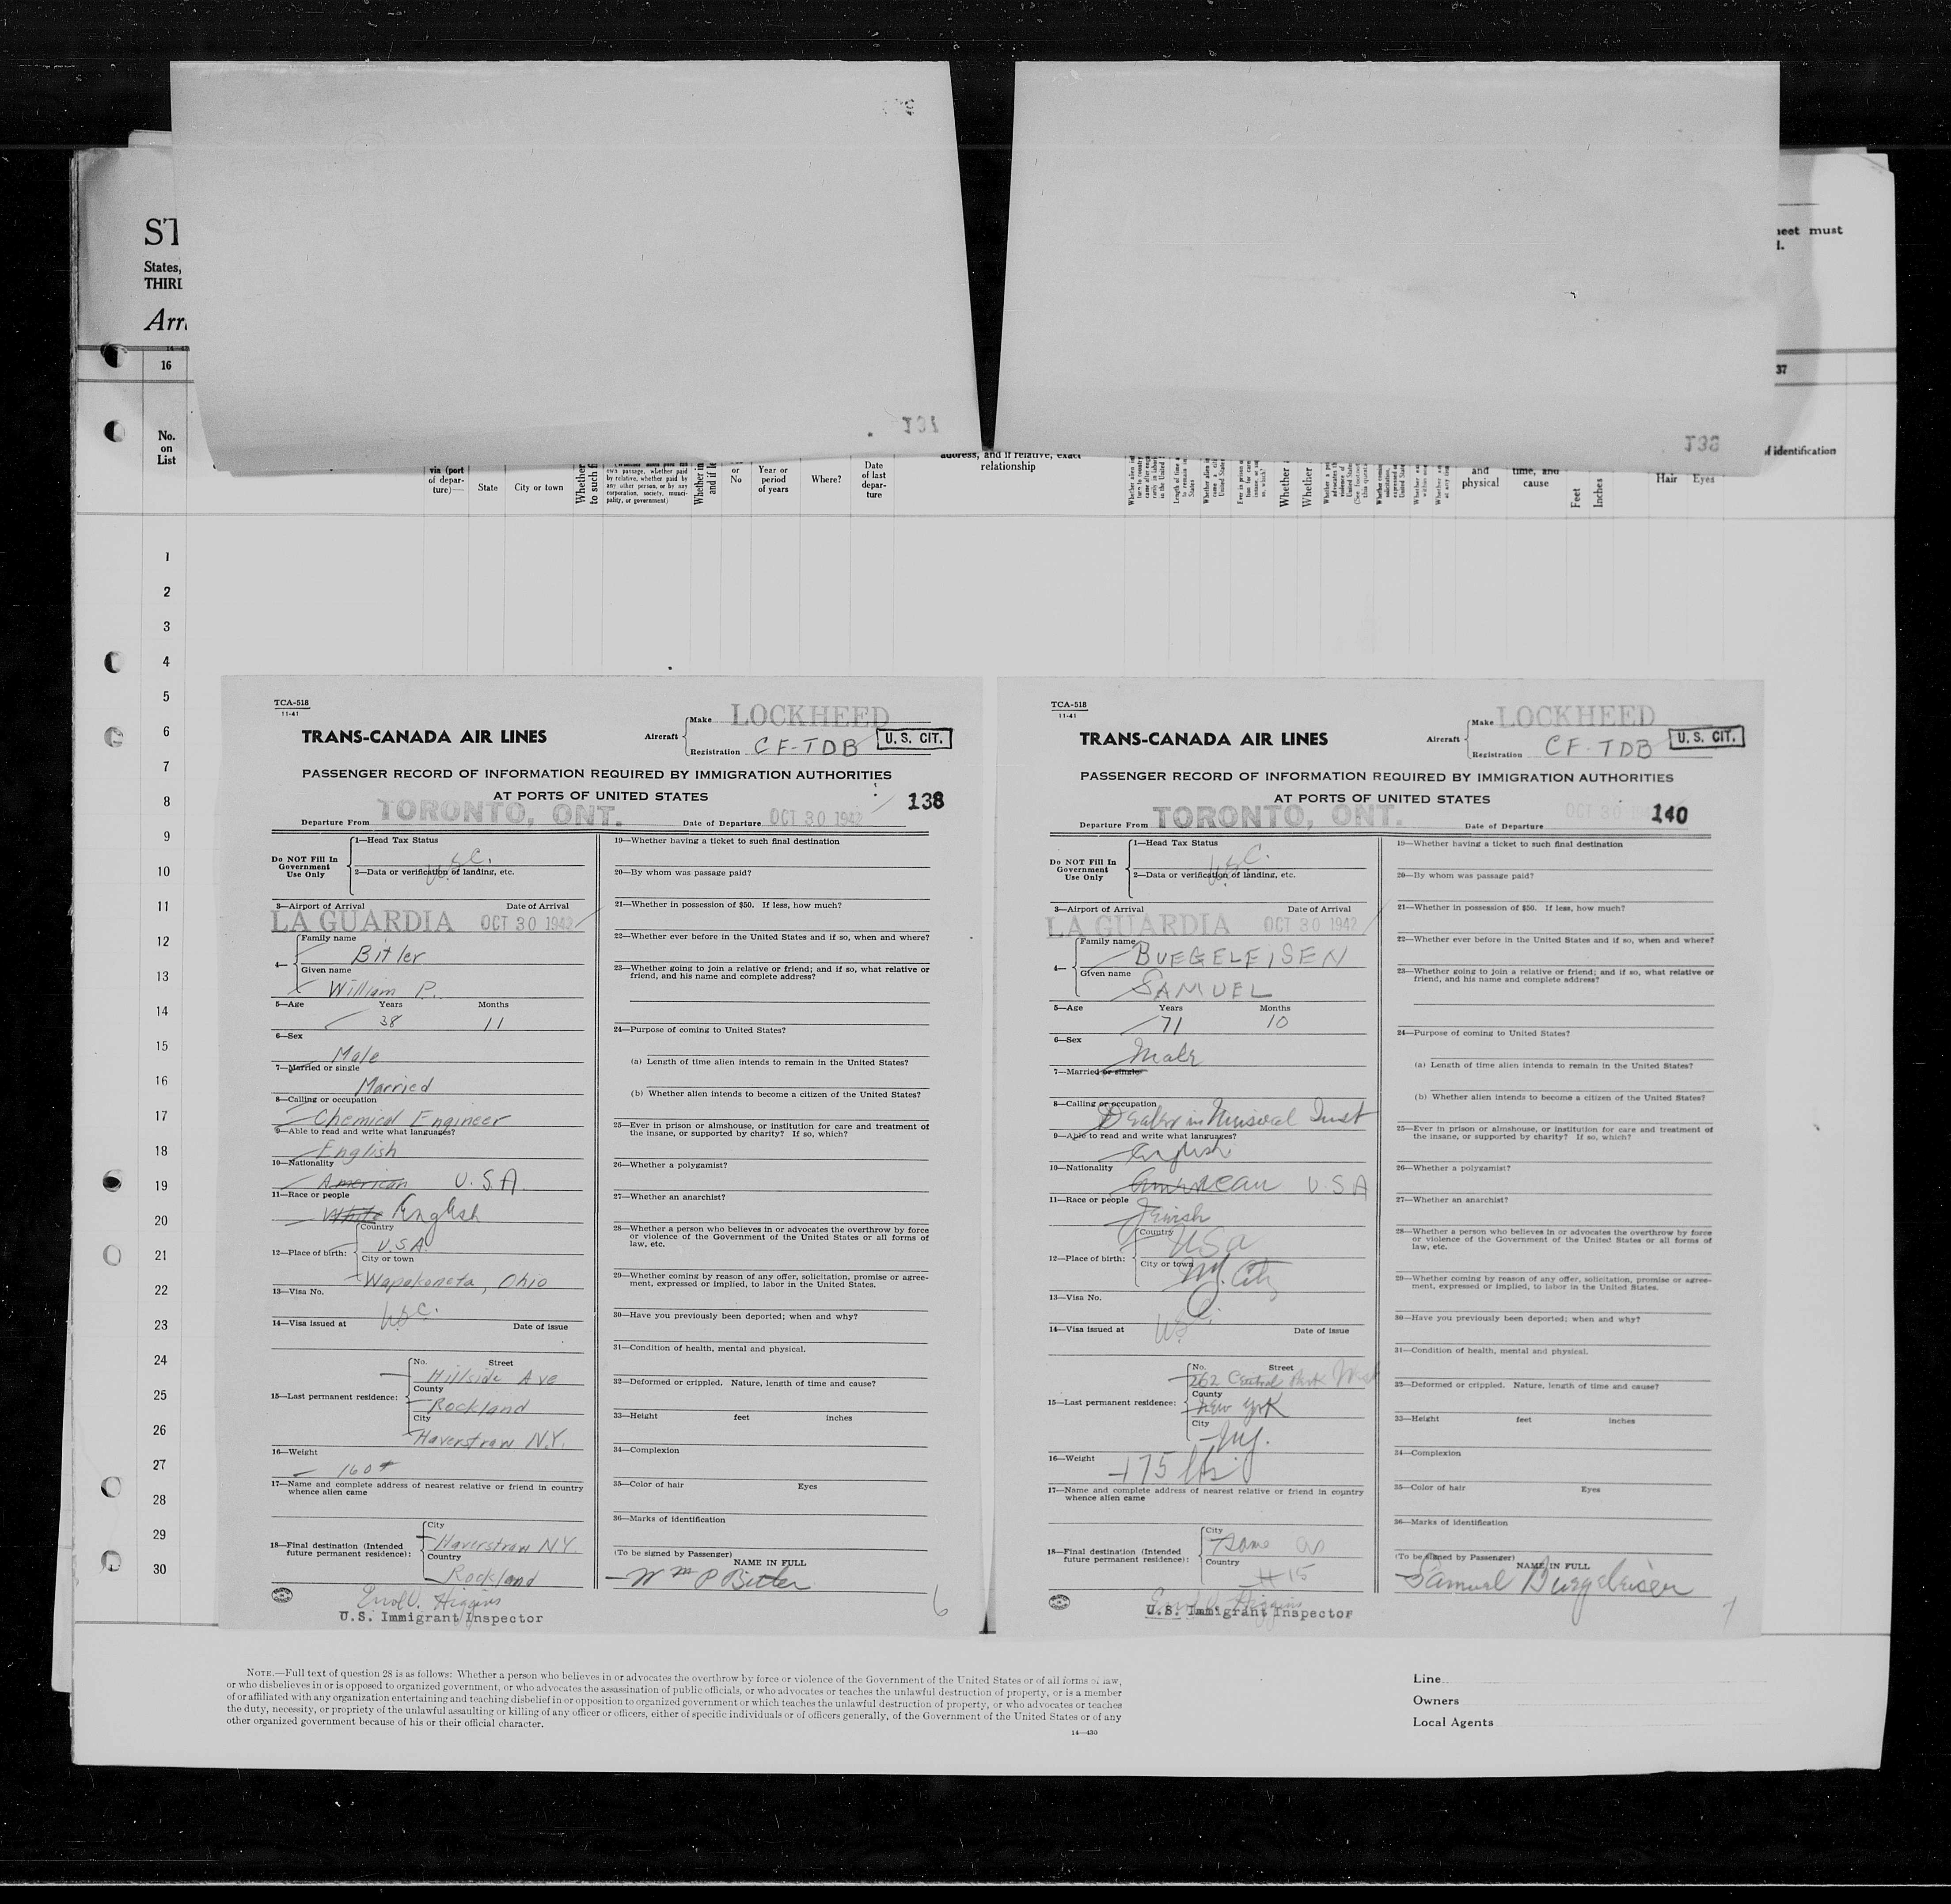 ST
States,
THIRD
Arr
16
37
No.
on
List
via (port
of depar-
ture)—
State
City or town
own passage, whether paid
by relative, whether paid by
any other person, or by any
corporation, society, munici-
pality, or government)
or
No
Year or
period
of years
Where?
Date
of last
depar-
ture
address, and if relative, exact
relationship
and
physical
time, and
cause
Feet
Inches
Hair
Eyes
of identification
heet must
137
138
1
2
3
4
5
6
7
8
9
10
11
12
13
14
15
16
17
18
19
20
21
22
23
24
25
26
27
28
29
30
TCA-518
11-41
TRANS-CANADA AIR LINES
Aircraft
Make LOCKHEED
Registration CF-TDB
U. S. CIT.
PASSENGER RECORD OF INFORMATION REQUIRED BY IMMIGRATION AUTHORITIES
AT PORTS OF UNITED STATES
138
Departure From TORONTO, ONT. Date of Departure OCT 30 1942
Do NOT Fill In
Government
Use Only
1—Head Tax Status
USC.
2—Data or verification of landing, etc.
3—Airport of Arrival Date of Arrival
LA GUARDIA OCT 30 1942
4—
Family name
Bitler
Given name
William P.
5—Age Years Months
38 11
6—Sex
Male
7—Married or single
Married
8—Calling or occupation
Chemical Engineer
9—Able to read and write what languages?
English
10—Nationality
American U.S.A.
11—Race or people
White English
12—Place of birth:
Country
U.S.A.
City or town
Wapakoneta, Ohio
13—Visa No.
USC.
14—Visa issued at Date of issue
15—Last permanent residence:
No. Street
Hillside Ave
County
Rockland
City
Haverstraw N.Y.
16—Weight
160#
17—Name and complete address of nearest relative or friend in country
whence alien came
18—Final destination (Intended
future permanent residence):
City
Haverstraw N.Y.
Country
Rockland
Errol V. Higgins
U.S. Immigrant Inspector
19—Whether having a ticket to such final destination
20—By whom was passage paid?
21—Whether in possession of $50. If less, how much?
22—Whether ever before in the United States and if so, when and where?
23—Whether going to join a relative or friend; and if so, what relative or
friend, and his name and complete address?
24—Purpose of coming to United States?
(a) Length of time alien intends to remain in the United States?
(b) Whether alien intends to become a citizen of the United States?
25—Ever in prison or almshouse, or institution for care and treatment of
the insane, or supported by charity? If so, which?
26—Whether a polygamist?
27—Whether an anarchist?
28—Whether a person who believes in or advocates the overthrow by force
or violence of the Government of the United States or all forms of
law, etc.
29—Whether coming by reason of any offer, solicitation, promise or agree-
ment, expressed or implied, to labor in the United States.
30—Have you previously been deported; when and why?
31—Condition of health, mental and physical.
32—Deformed or crippled. Nature, length of time and cause?
33—Height feet inches
34—Complexion
35—Color of hair Eyes
36—Marks of identification
(To be signed by Passenger)
NAME IN FULL
Wm P Bitler
6
TCA-518
11-41
TRANS-CANADA AIR LINES
Aircraft
Make LOCKHEED
Registration CF-TDB
U. S. CIT.
PASSENGER RECORD OF INFORMATION REQUIRED BY IMMIGRATION AUTHORITIES
AT PORTS OF UNITED STATES
140
Departure From TORONTO, ONT. Date of Departure OCT 30 1942
Do NOT Fill In
Government
Use Only
1—Head Tax Status
USC.
2—Data or verification of landing, etc.
3—Airport of Arrival Date of Arrival
LA GUARDIA OCT 30 1942
4—
Family name
BUEGELEISEN
Given name
SAMUEL
5—Age Years Months
71 10
6—Sex
Male
7—Married or single
8—Calling or occupation
Dealer in Musical Inst
9—Able to read and write what languages?
English
10—Nationality
American U.S.A
11—Race or people
Jewish
12—Place of birth:
Country
USA
City or town
N.Y. City
13—Visa No.
USC.
14—Visa issued at Date of issue
15—Last permanent residence:
No. Street
262 Central Park West
County
New York
City
N.Y.
16—Weight
175 lbs.
17—Name and complete address of nearest relative or friend in country
whence alien came
18—Final destination (Intended
future permanent residence):
City
Same as
Country
#15
Errol V. Higgins
U.S. Immigrant Inspector
19—Whether having a ticket to such final destination
20—By whom was passage paid?
21—Whether in possession of $50. If less, how much?
22—Whether ever before in the United States and if so, when and where?
23—Whether going to join a relative or friend; and if so, what relative or
friend, and his name and complete address?
24—Purpose of coming to United States?
(a) Length of time alien intends to remain in the United States?
(b) Whether alien intends to become a citizen of the United States?
25—Ever in prison or almshouse, or institution for care and treatment of
the insane, or supported by charity? If so, which?
26—Whether a polygamist?
27—Whether an anarchist?
28—Whether a person who believes in or advocates the overthrow by force
or violence of the Government of the United States or all forms of
law, etc.
29—Whether coming by reason of any offer, solicitation, promise or agree-
ment, expressed or implied, to labor in the United States.
30—Have you previously been deported; when and why?
31—Condition of health, mental and physical.
32—Deformed or crippled. Nature, length of time and cause?
33—Height feet inches
34—Complexion
35—Color of hair Eyes
36—Marks of identification
(To be signed by Passenger)
NAME IN FULL
Samuel Buegeleisen
7
NOTE.—Full text of question 28 is as follows: Whether a person who believes in or advocates the overthrow by force or violence of the Government of the United States or of all forms of law,
or who disbelieves in or is opposed to organized government, or who advocates the assassination of public officials, or who advocates or teaches the unlawful destruction of property, or is a member
of or affiliated with any organization entertaining and teaching disbelief in or opposition to organized government or which teaches the unlawful destruction of property, or who advocates or teaches
the duty, necessity, or propriety of the unlawful assaulting or killing of any officer or officers, either of specific individuals or of officers generally, of the Government of the United States or of any
other organized government because of his or their official character.
14—430
Line
Owners
Local Agents